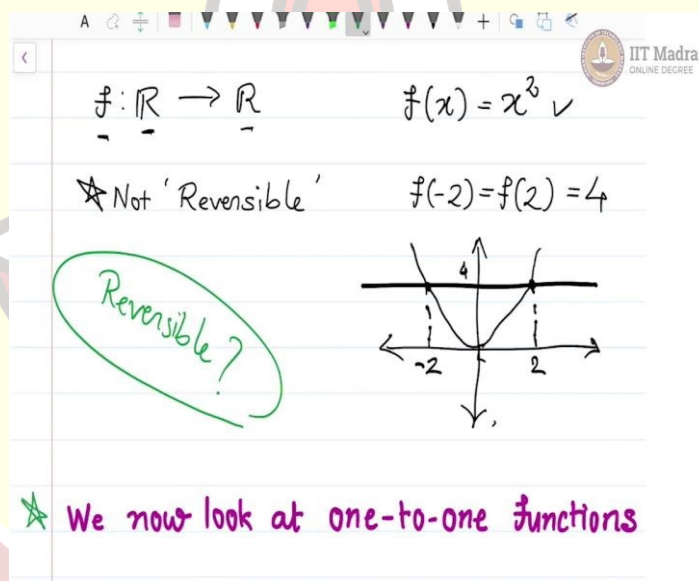 A
IIT Madra
ONLINE DEGREE
f : ℝ → ℝ
f(x) = x² ✓
☆ Not 'Reversible'
f(-2) = f(2) = 4
Reversible?
4
-2
2
☆ We now look at one-to-one functions